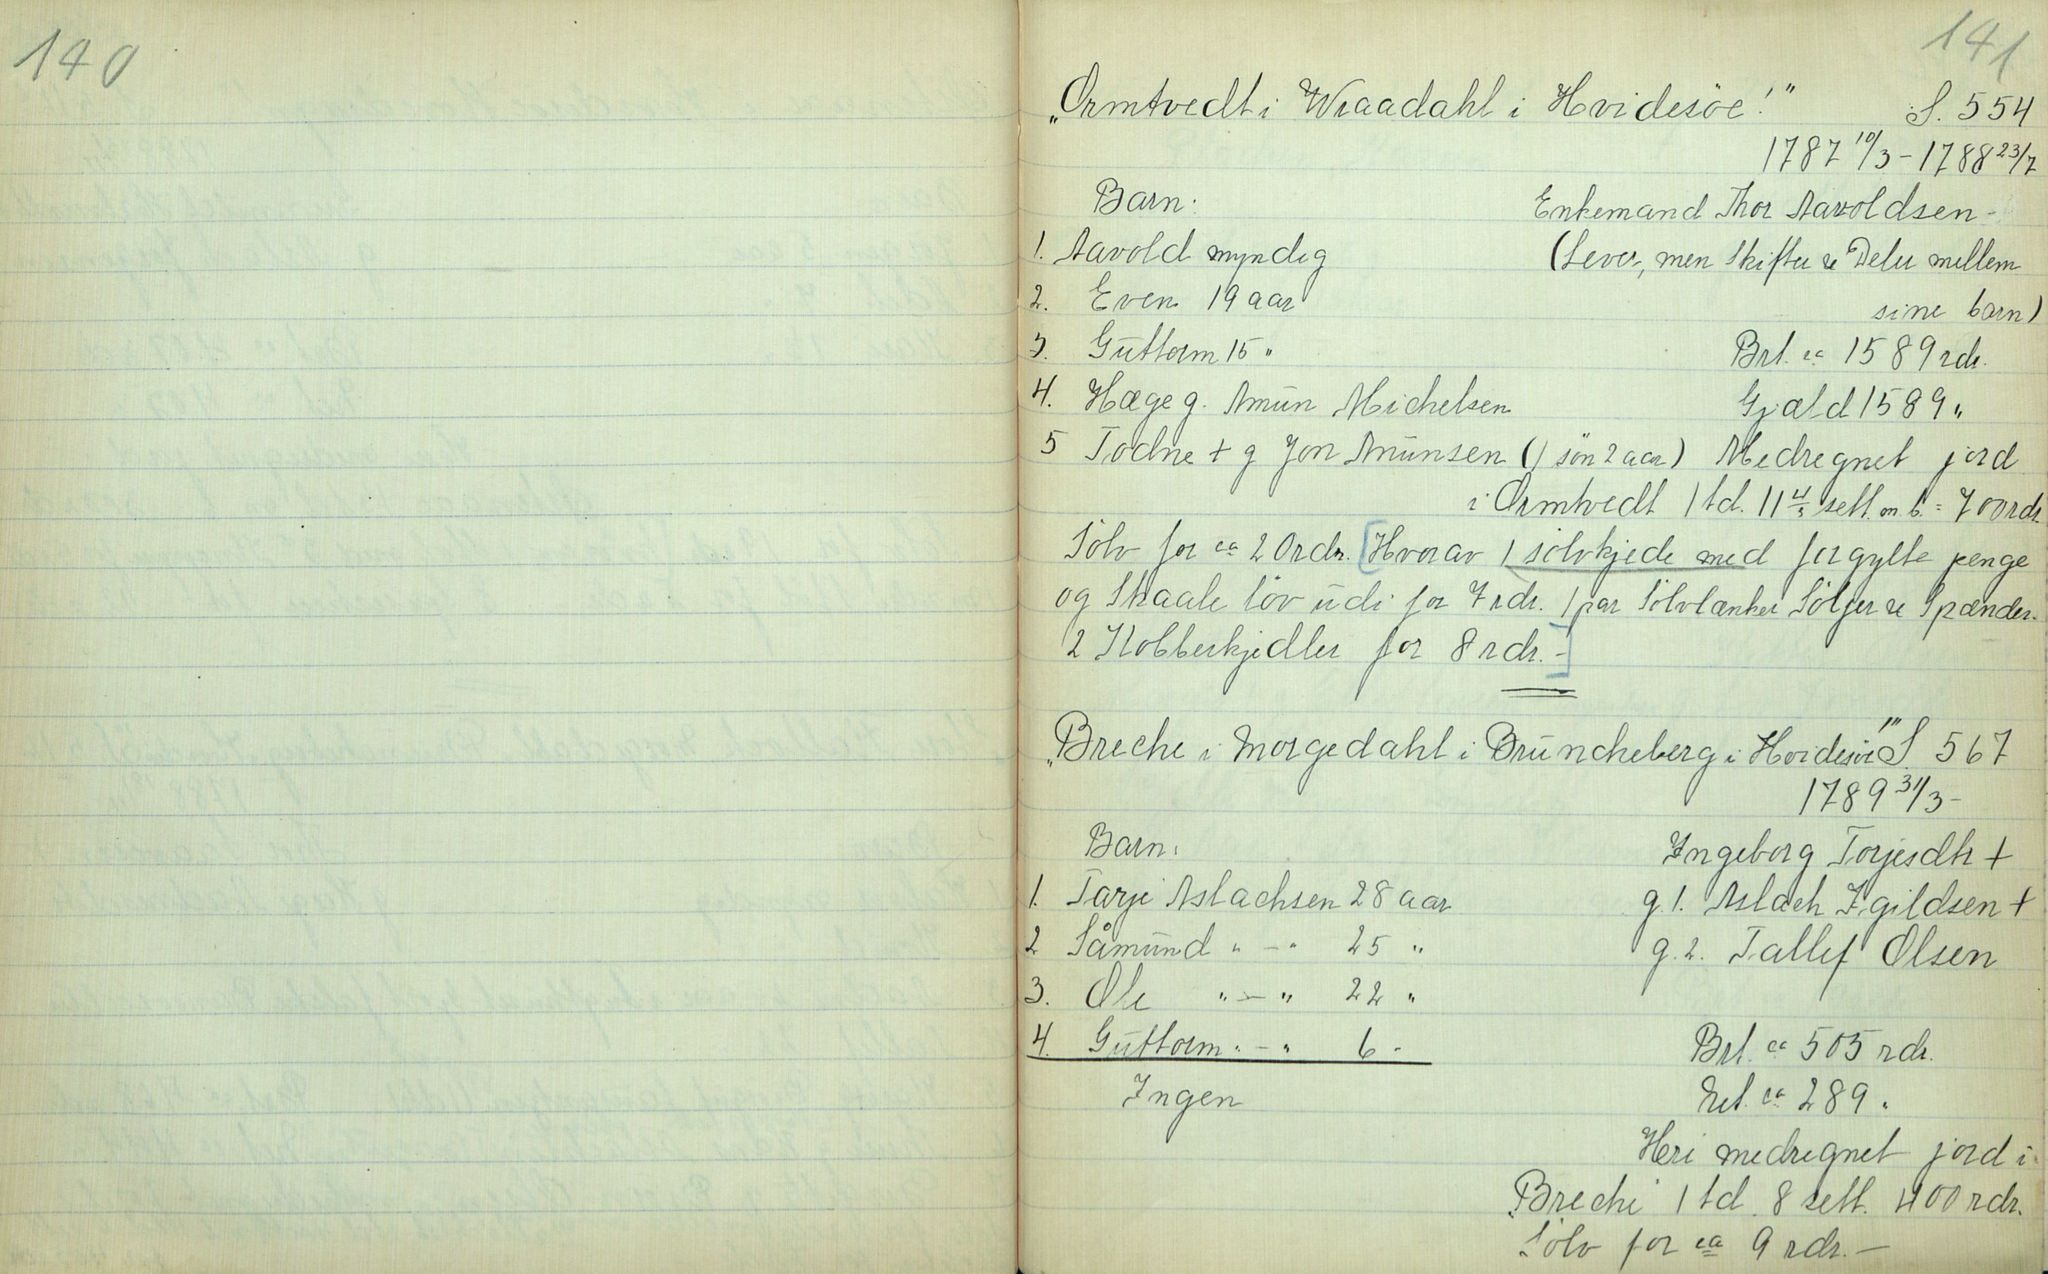 140
141
„Ormtvedt i Wraadahl i Hvidesöe!" S. 554
1787 10/3 - 1788 23/7
Barn: Enkemand Thor Aavoldsen -
1. Aavold myndig (Lever, men Skifter & Deler mellem
2. Even 19 aar sine barn)
3. Guttorm 15 " Brt. ca 1589 rdr.
4. Hæge g. Amun Michelsen Gjæld 1589 "
5 Todne + g Jon Amunsen (1 sön 2 aar) Medregnet jord
i Ormtvedt 1 td. 11 4/5 sett. m. b. = 700 rdr.
Sölv for ca 20 rdr. [Hvorav 1 sölvkjede med forgylte penge
og Skaale löv udi for 7 rdr. 1 par Sölvlænker Söljer & Spænder.
2 Kobberkjedler for 8 rdr. -]
„Breche i Morgedahl i Bruncheberg i Hvidesöe" S 567
1789 31/3 -
Barn: Ingeborg Torjesdtr +
1. Tarje Aslachsen 28 aar g. 1. Aslach Egildsen +
2 Såmund " - " 25 " g. 2. Tallef Olsen
3. Ole " - " 22 "
4. Guttorm " - " 6 - Brt. ca 505 rdr.
Ingen Net. ca 289 "
Heri medregnet jord i
Breche 1 td. 8 sett. 400 rdr.
Sölv for ca 9 rdr. -